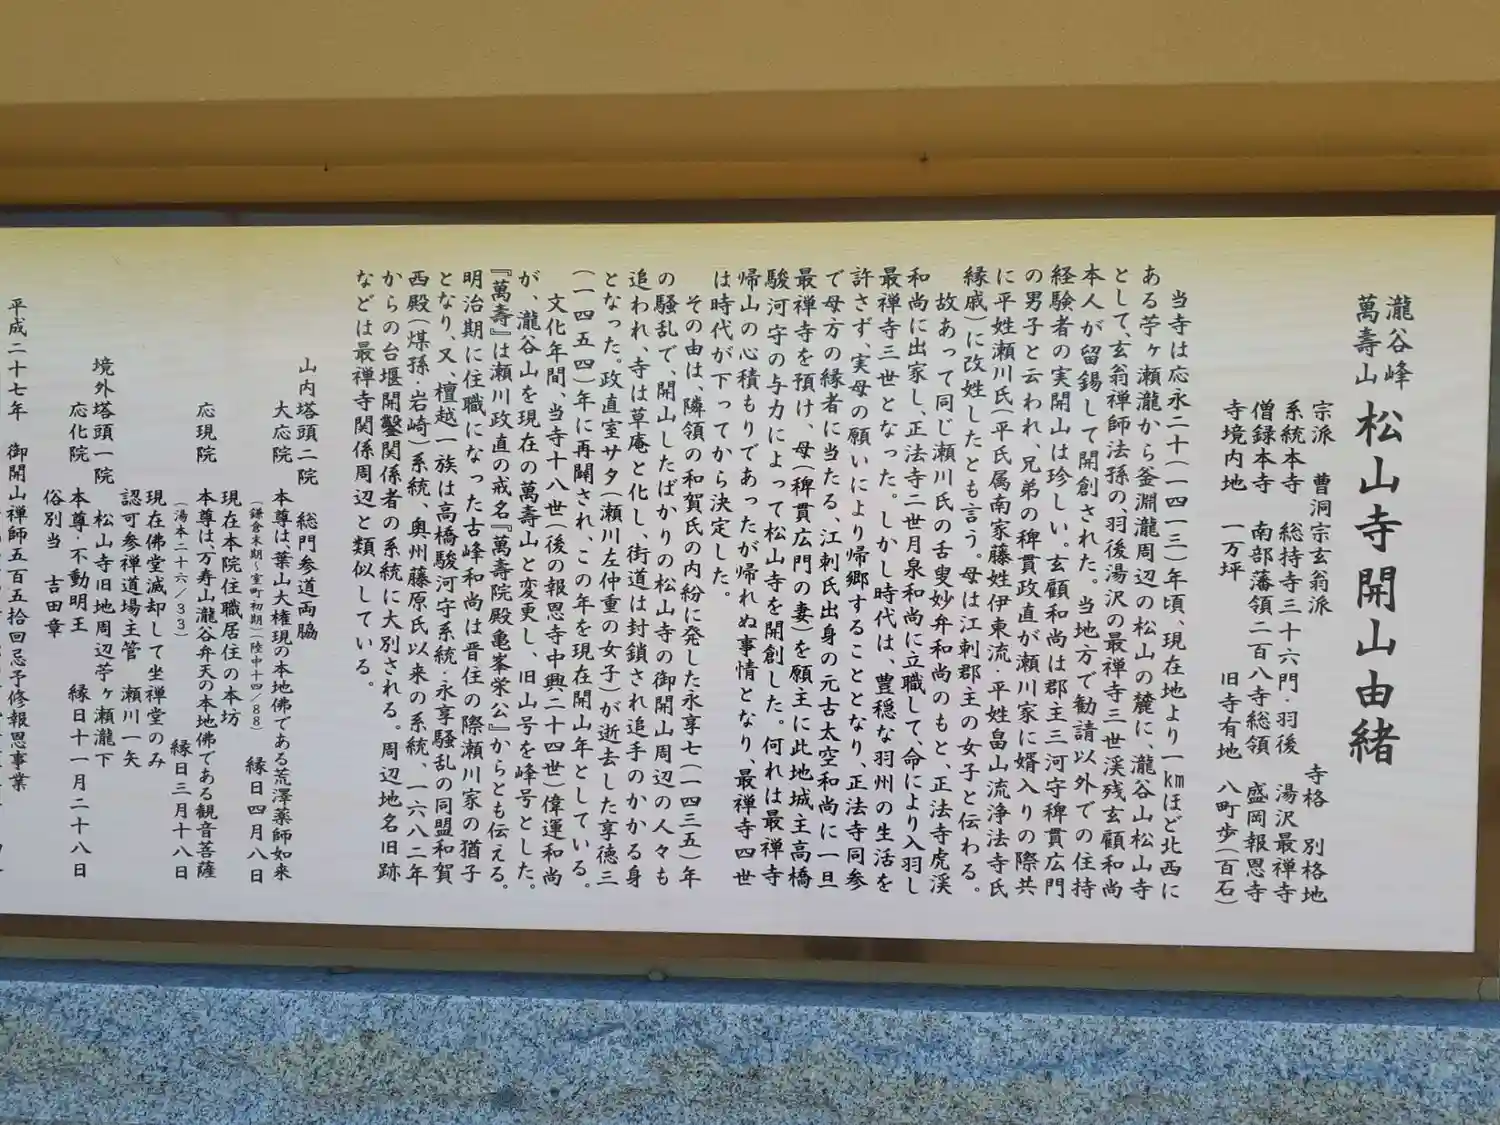 瀧谷峰
萬壽山
松山寺開山由緒
宗派　曹洞宗玄翁派　寺格　別格地
系統本寺　総持寺三十六門・羽後　湯沢最禅寺
僧録本寺　南部藩領二百八寺総領　盛岡報恩寺
寺境内地　一万坪　旧寺有地　八町歩(百石)
当寺は応永二十(一四一三)年頃、現在地より一kmほど北西に
ある苧ヶ瀬瀧から釜淵瀧周辺の松山の麓に、瀧谷山松山寺
として、玄翁禅師法孫の、羽後湯沢の最禅寺三世渓残玄顧和尚
本人が留錫して開創された。当地方で勧請以外での住持
経験者の実開山は珍しい。玄顧和尚は郡主三河守稗貫広門
の男子と云われ、兄弟の稗貫政直が瀬川家に婿入りの際共
に平姓瀬川氏(平氏属南家藤姓伊東流・平姓畠山流浄法寺氏
縁戚)に改姓したとも言う。母は江刺郡主の女子と伝わる。
故あって同じ瀬川氏の舌叟妙弁和尚のもと、正法寺虎渓
和尚に出家し、正法寺二世月泉和尚に立職して、命により入羽し
最禅寺三世となった。しかし時代は、豊穏な羽州の生活を
許さず、実母の願いにより帰郷することとなり、正法寺同参
で母方の縁者に当たる、江刺氏出身の元古太空和尚に一旦
最禅寺を預け、母(稗貫広門の妻)を願主に此地城主高橋
駿河守の与力によって松山寺を開創した。何れは最禅寺
帰山の心積もりであったが帰れぬ事情となり、最禅寺四世
は時代が下ってから決定した。
その由は、隣領の和賀氏の内紛に発した永享七(一四三五)年
の騒乱で、開山したばかりの松山寺の御開山周辺の人々も
追われ、寺は草庵と化し、街道は封鎖され追手のかかる身
となった。政直室サタ(瀬川左仲重の女子)が逝去した享徳三
(一四五四)年に再開され、この年を現在開山年としている。
文化年間、当寺十八世(後の報恩寺中興二十四世)偉運和尚
が、瀧谷山を現在の萬壽山と変更し、旧山号を峰号とした。
『萬壽』は瀬川政直の戒名『萬壽院殿亀峯栄公』からとも伝える。
明治期に住職になった古峰和尚は晋住の際瀬川家の猶子
となり、又、檀越一族は高橋駿河守系統・永享騒乱の同盟和賀
西殿(煤孫・岩崎)系統、奥州藤原氏以来の系統、一六八二年
からの台堰開鑿関係者の系統に大別される。周辺地名旧跡
などは最禅寺関係周辺と類似している。
山内塔頭二院　総門参道両脇
大応院　本尊は葉山大権現の本地佛である荒澤薬師如来
(鎌倉末期〜室町初期)(陸中十四/88)　縁日四月八日
現在本院住職居住の本坊
応現院　本尊は、万寿山瀧谷弁天の本地佛である観音菩薩
(湯本二十六/33)　縁日三月十八日
現在佛堂滅却して坐禅堂のみ
認可参禅道場主管　瀬川一矢
境外塔頭一院　松山寺旧地周辺苧ヶ瀬瀧下
応化院　本尊・不動明王　縁日十一月二十八日
俗別当　吉田章
平成二十七年　御開山禅師五百五拾回忌予修報恩事業